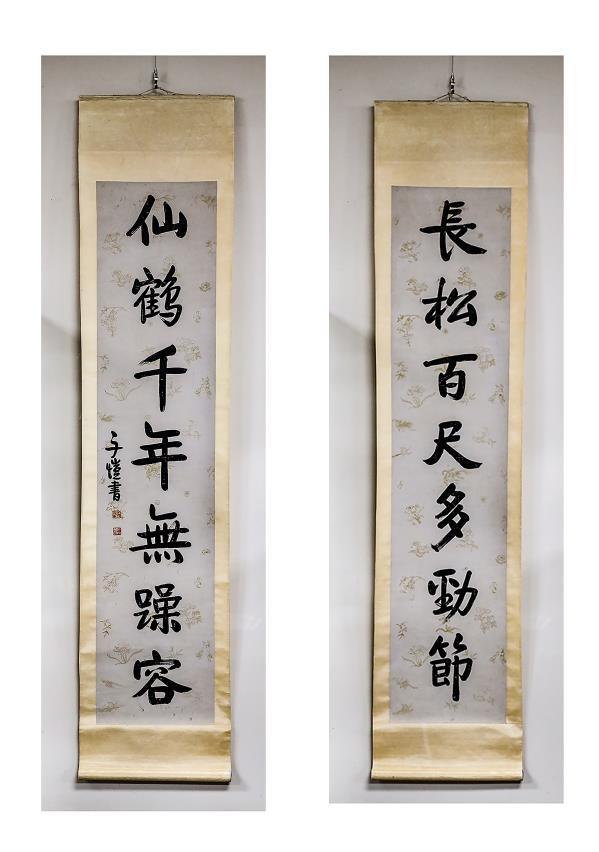 長松百尺多勁節
仙鶴千年無躁容
子愷書